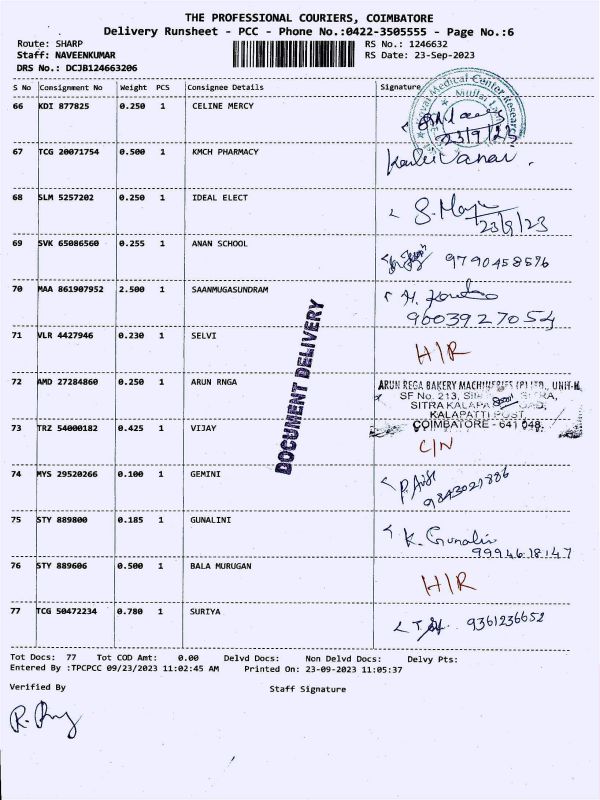 THE PROFESSIONAL COURIERS, COIMBATORE
Delivery Runsheet - PCC - Phone No.:0422-3505555 - Page No.:6
Route: SHARP RS No.: 1246632
Staff: NAVEENKUMAR RS Date: 23-Sep-2023
DRS No.: DCJB124663206
S No Consignment No Weight PCS Consignee Details Signature
Medical Center Research
66 KDI 877825 0.250 1 CELINE MERCY
23/9/23
67 TCG 20071754 0.500 1 KMCH PHARMACY
68 SLM 5257202 0.250 1 IDEAL ELECT
23/9/23
69 SVK 65086560 0.255 1 ANAN SCHOOL 9790458596
70 MAA 861907952 2.500 1 SAANMUGASUNDRAM
9003927054
DOCUMENT DELIVERY
71 VLR 4427946 0.230 1 SELVI
H/R
72 AMD 27284860 0.250 1 ARUN RNGA ARUN REGA BAKERY MACHINERIES (P) LTD., UNIT-II
SF No. 213,
SITRA KALAPA
KALAPATTI POST,
73 TRZ 54000182 0.425 1 VIJAY COIMBATORE - 641 048.
C/N
74 MYS 29520266 0.100 1 GEMINI
9843021886
75 STY 889800 0.185 1 GUNALINI K. Gunalini
9994618147
76 STY 889606 0.500 1 BALA MURUGAN
H/R
77 TCG 50472234 0.780 1 SURIYA 9361236652
Tot Docs: 77 Tot COD Amt: 0.00 Delvd Docs: Non Delvd Docs: Delvy Pts:
Entered By :TPCPCC 09/23/2023 11:02:45 AM Printed On: 23-09-2023 11:05:37
Verified By Staff Signature